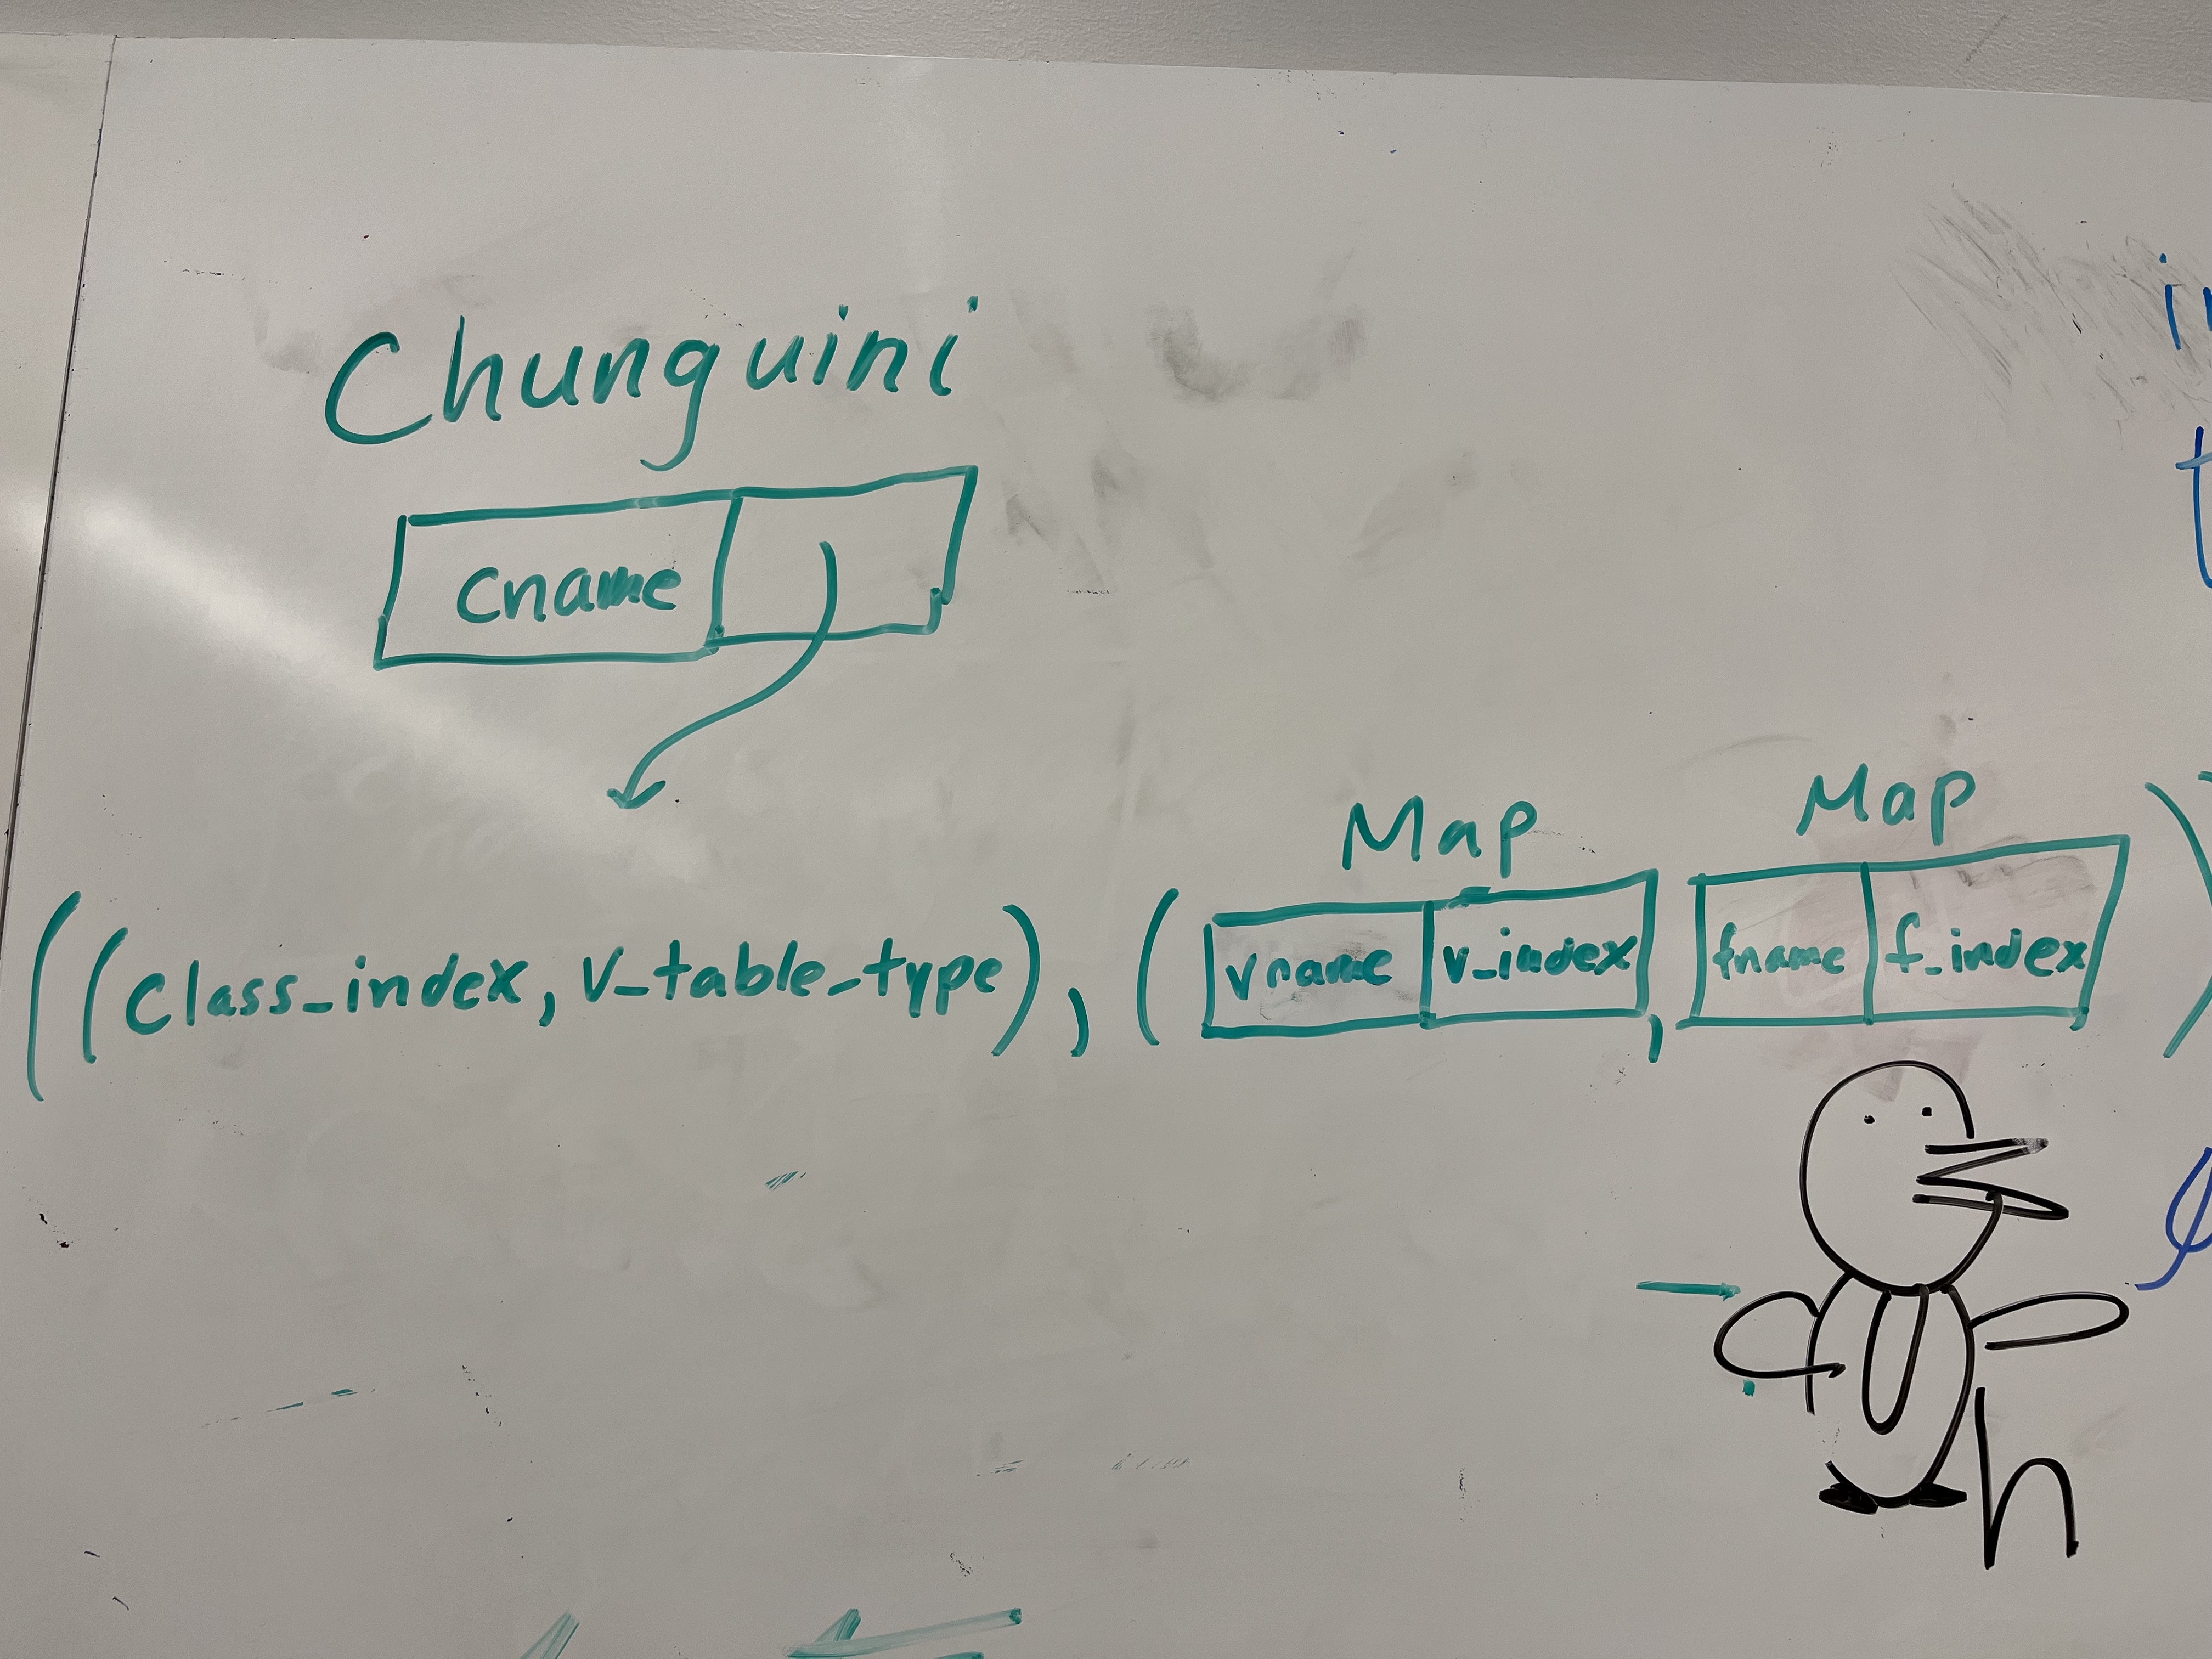 Chunguini
cname
Map Map
((class_index, v_table_type), (vname v_index, fname f_index)
h